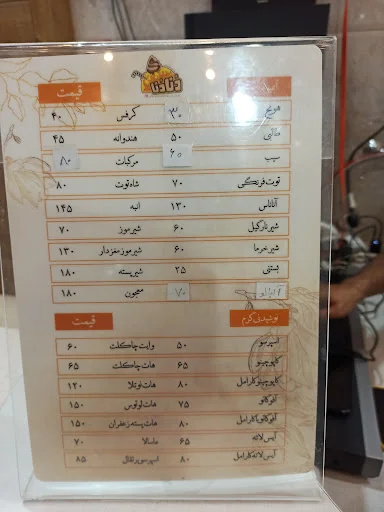 دنادنا
قیمت
هویج ۳۰ کرفس ۴۰
طالبی ۵۰ هندوانه ۴۵
سیب ۶۰ مرکبات ۸۰
توت فرنگی ۷۰ شاه توت ۸۰
آناناس ۱۳۰ انبه ۱۴۵
شیرنارگیل ۶۰ شیرموز ۷۰
شیرخرما ۶۰ شیرموز مغزدار ۱۳۰
بستنی ۲۵ شیرپسته ۱۸۰
۷۰ معجون ۱۸۰
نوشیدنی گرم قیمت
اسپرسو ۵۰ وایت چاکلت ۶۰
کاپوچینو ۶۵ هات چاکلت ۶۵
کاپوچینو کارامل ۸۰ هات نوتلا ۱۲۰
آفوگاتو ۷۵ هات لوتوس ۱۵۰
آفوگاتو کارامل ۸۰ هات پسته زعفران ۱۵۰
آیس لاته ۶۵ ماسالا ۷۰
آیس لاته کارامل ۸۰ اسپرسو پرتقال ۸۵